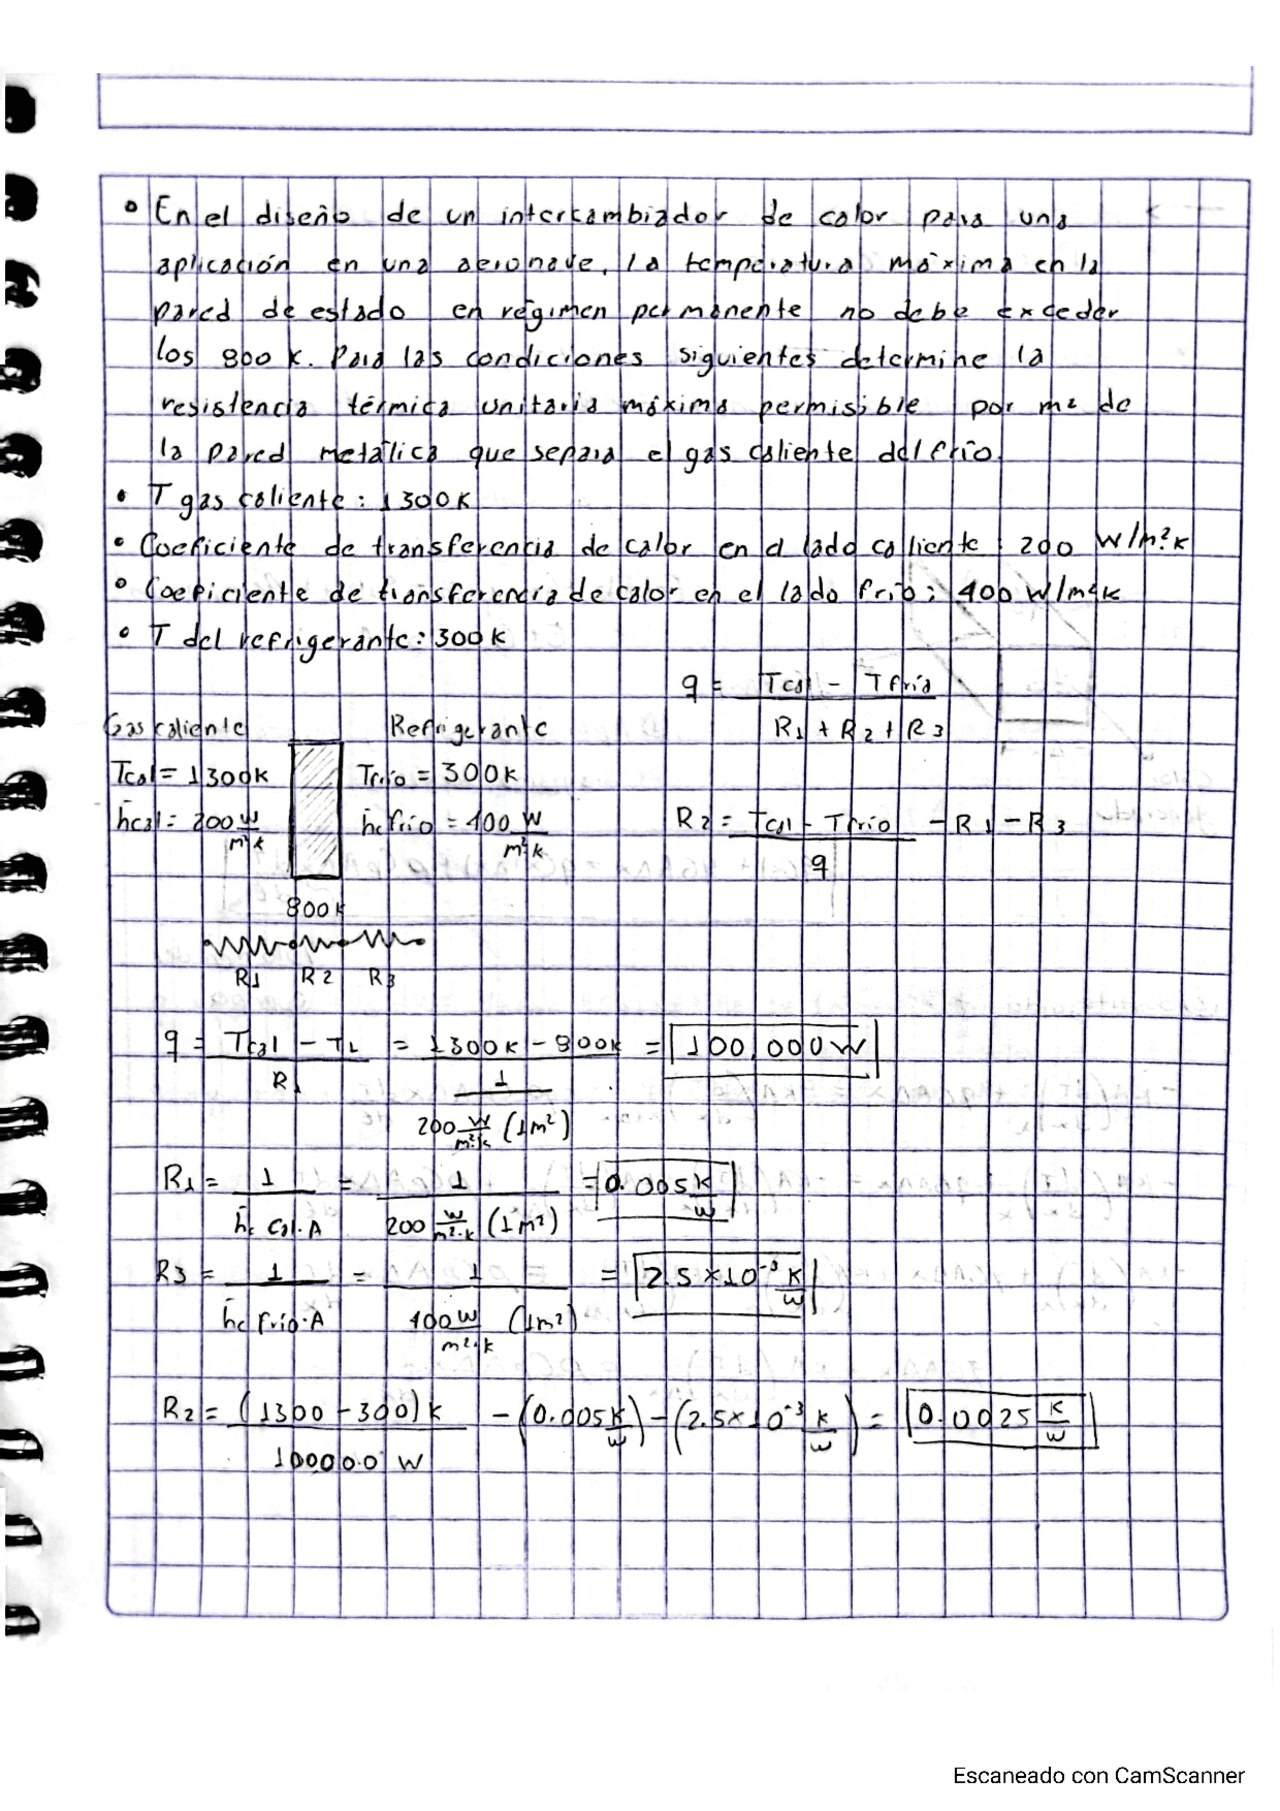 • En el diseño de un intercambiador de calor para una
aplicación en una aeronave, la temperatura máxima en la
pared de estado en régimen permanente no debe exceder
los 800 K. Para las condiciones siguientes determine la
resistencia térmica unitaria máxima permisible por m² de
la pared metálica que separa el gas caliente del frío
• T gas caliente: 1300K
• Coeficiente de transferencia de calor en el lado caliente: 200 W/m²K
• Coeficiente de transferencia de calor en el lado frio: 400 W/m²K
• T del refrigerante: 300K
q = (Tcal - Tfrio) / (R1 + R2 + R3)
Gas caliente Refrigerante
Tcal = 1300K Tfrio = 300K
h̄cal = 200 W/m²K h̄c frio = 400 W/m²·K R2 = (Tcal - Tfrio)/q - R1 - R3
800K
R1 R2 R3
q = (Tcal - T1)/R1 = (1300K - 800K) / (1/(200 W/m²·K (1m²))) = 100,000W
R1 = 1/(h̄c cal·A) = 1/(200 W/m²·K (1m²)) = 0.005 K/W
R3 = 1/(h̄c frio·A) = 1/(400 W/m²·K (1m²)) = 2.5×10⁻³ K/W
R2 = (1300-300)K / 100000 W - (0.005 K/W) - (2.5×10⁻³ K/W) = 0.0025 K/W
Escaneado con CamScanner